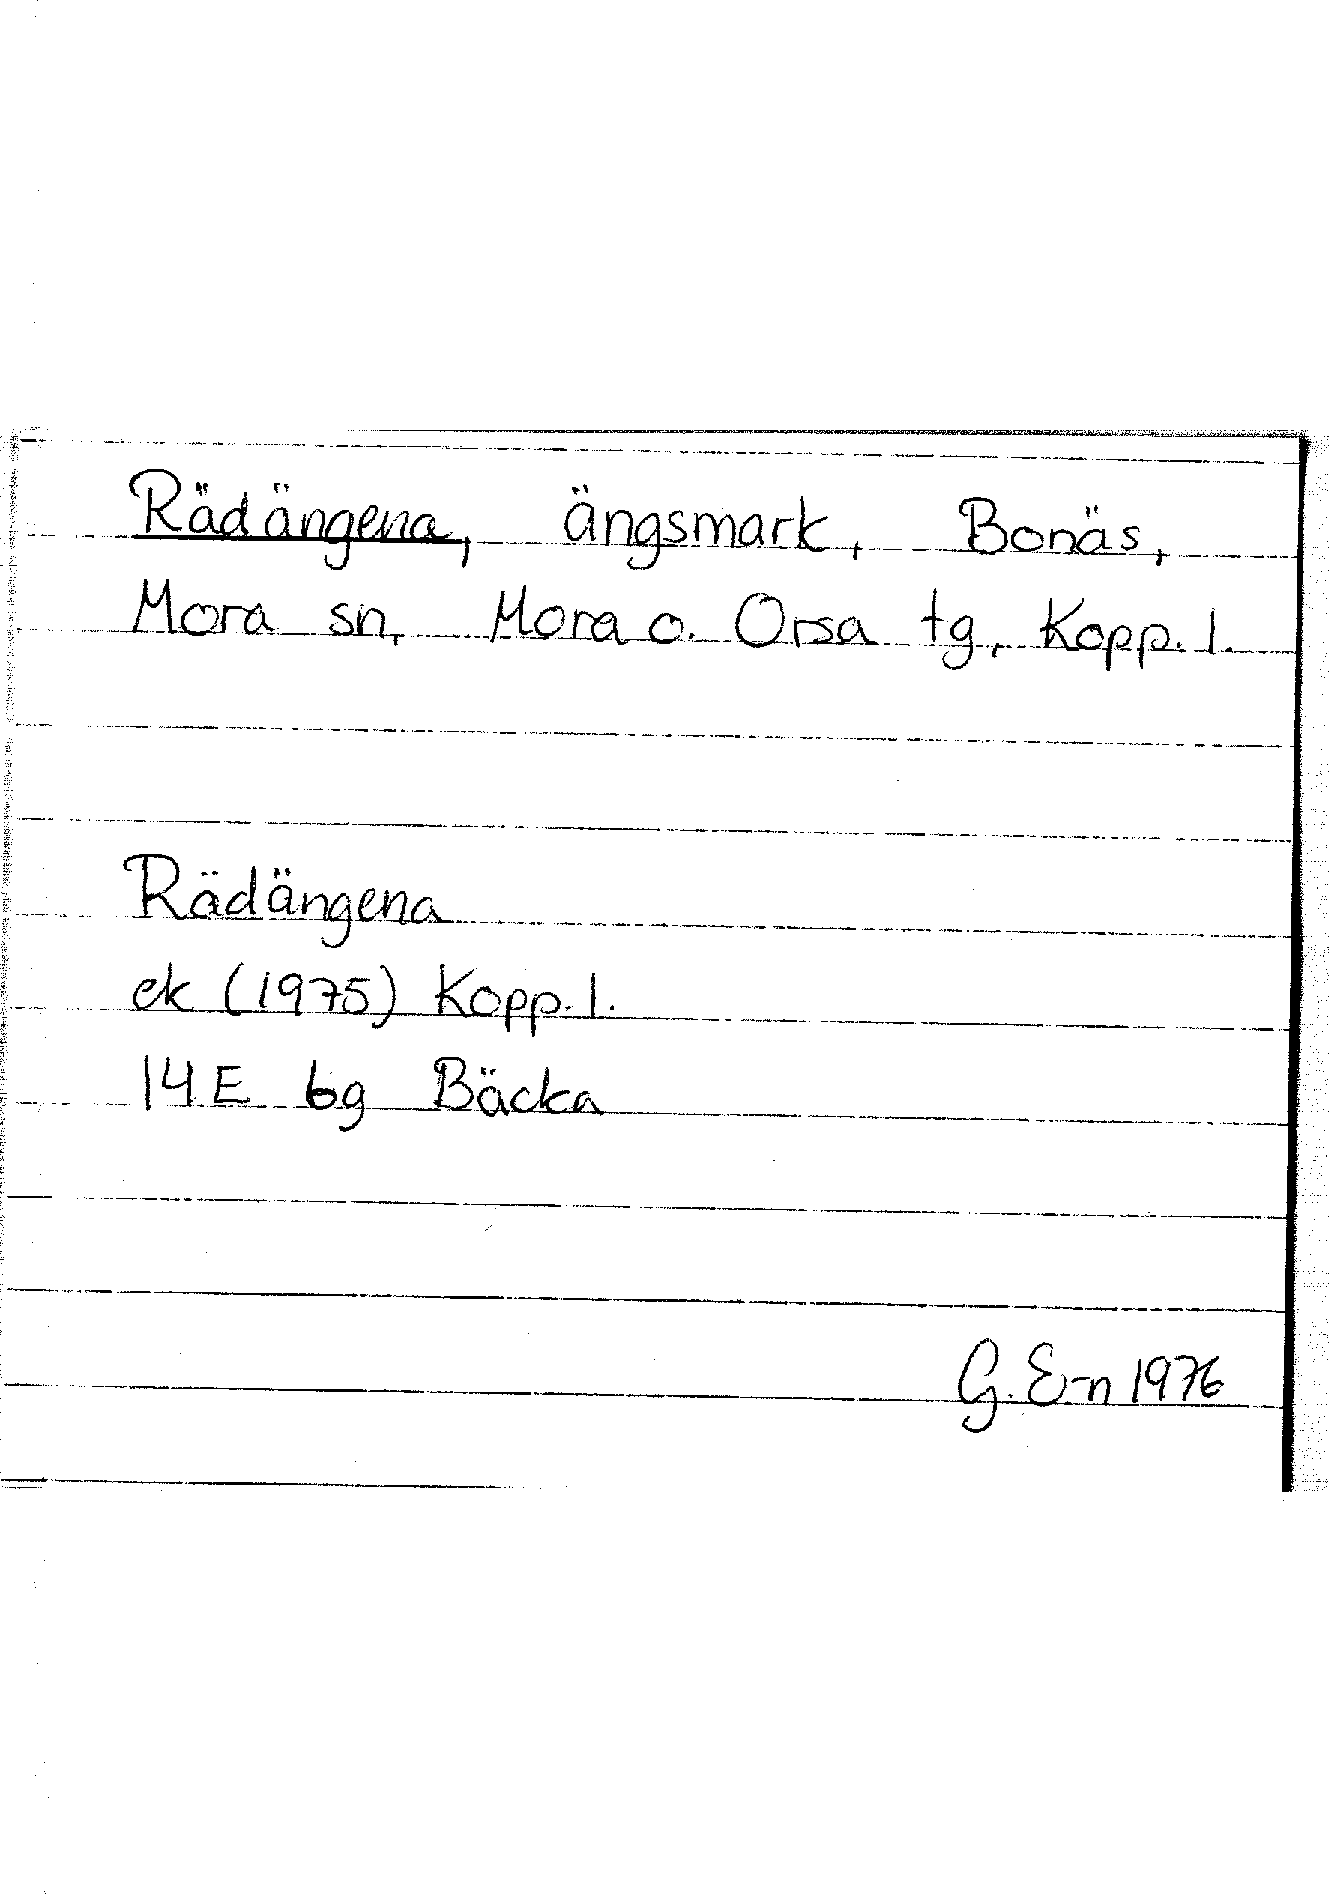 Rädängena, ängsmark, Bonäs,
Mora sn, Mora o. Orsa tg, Kopp. l.
Rädängena
ek (1975) Kopp. l.
14E 6g Bäcka
G. E-n 1976